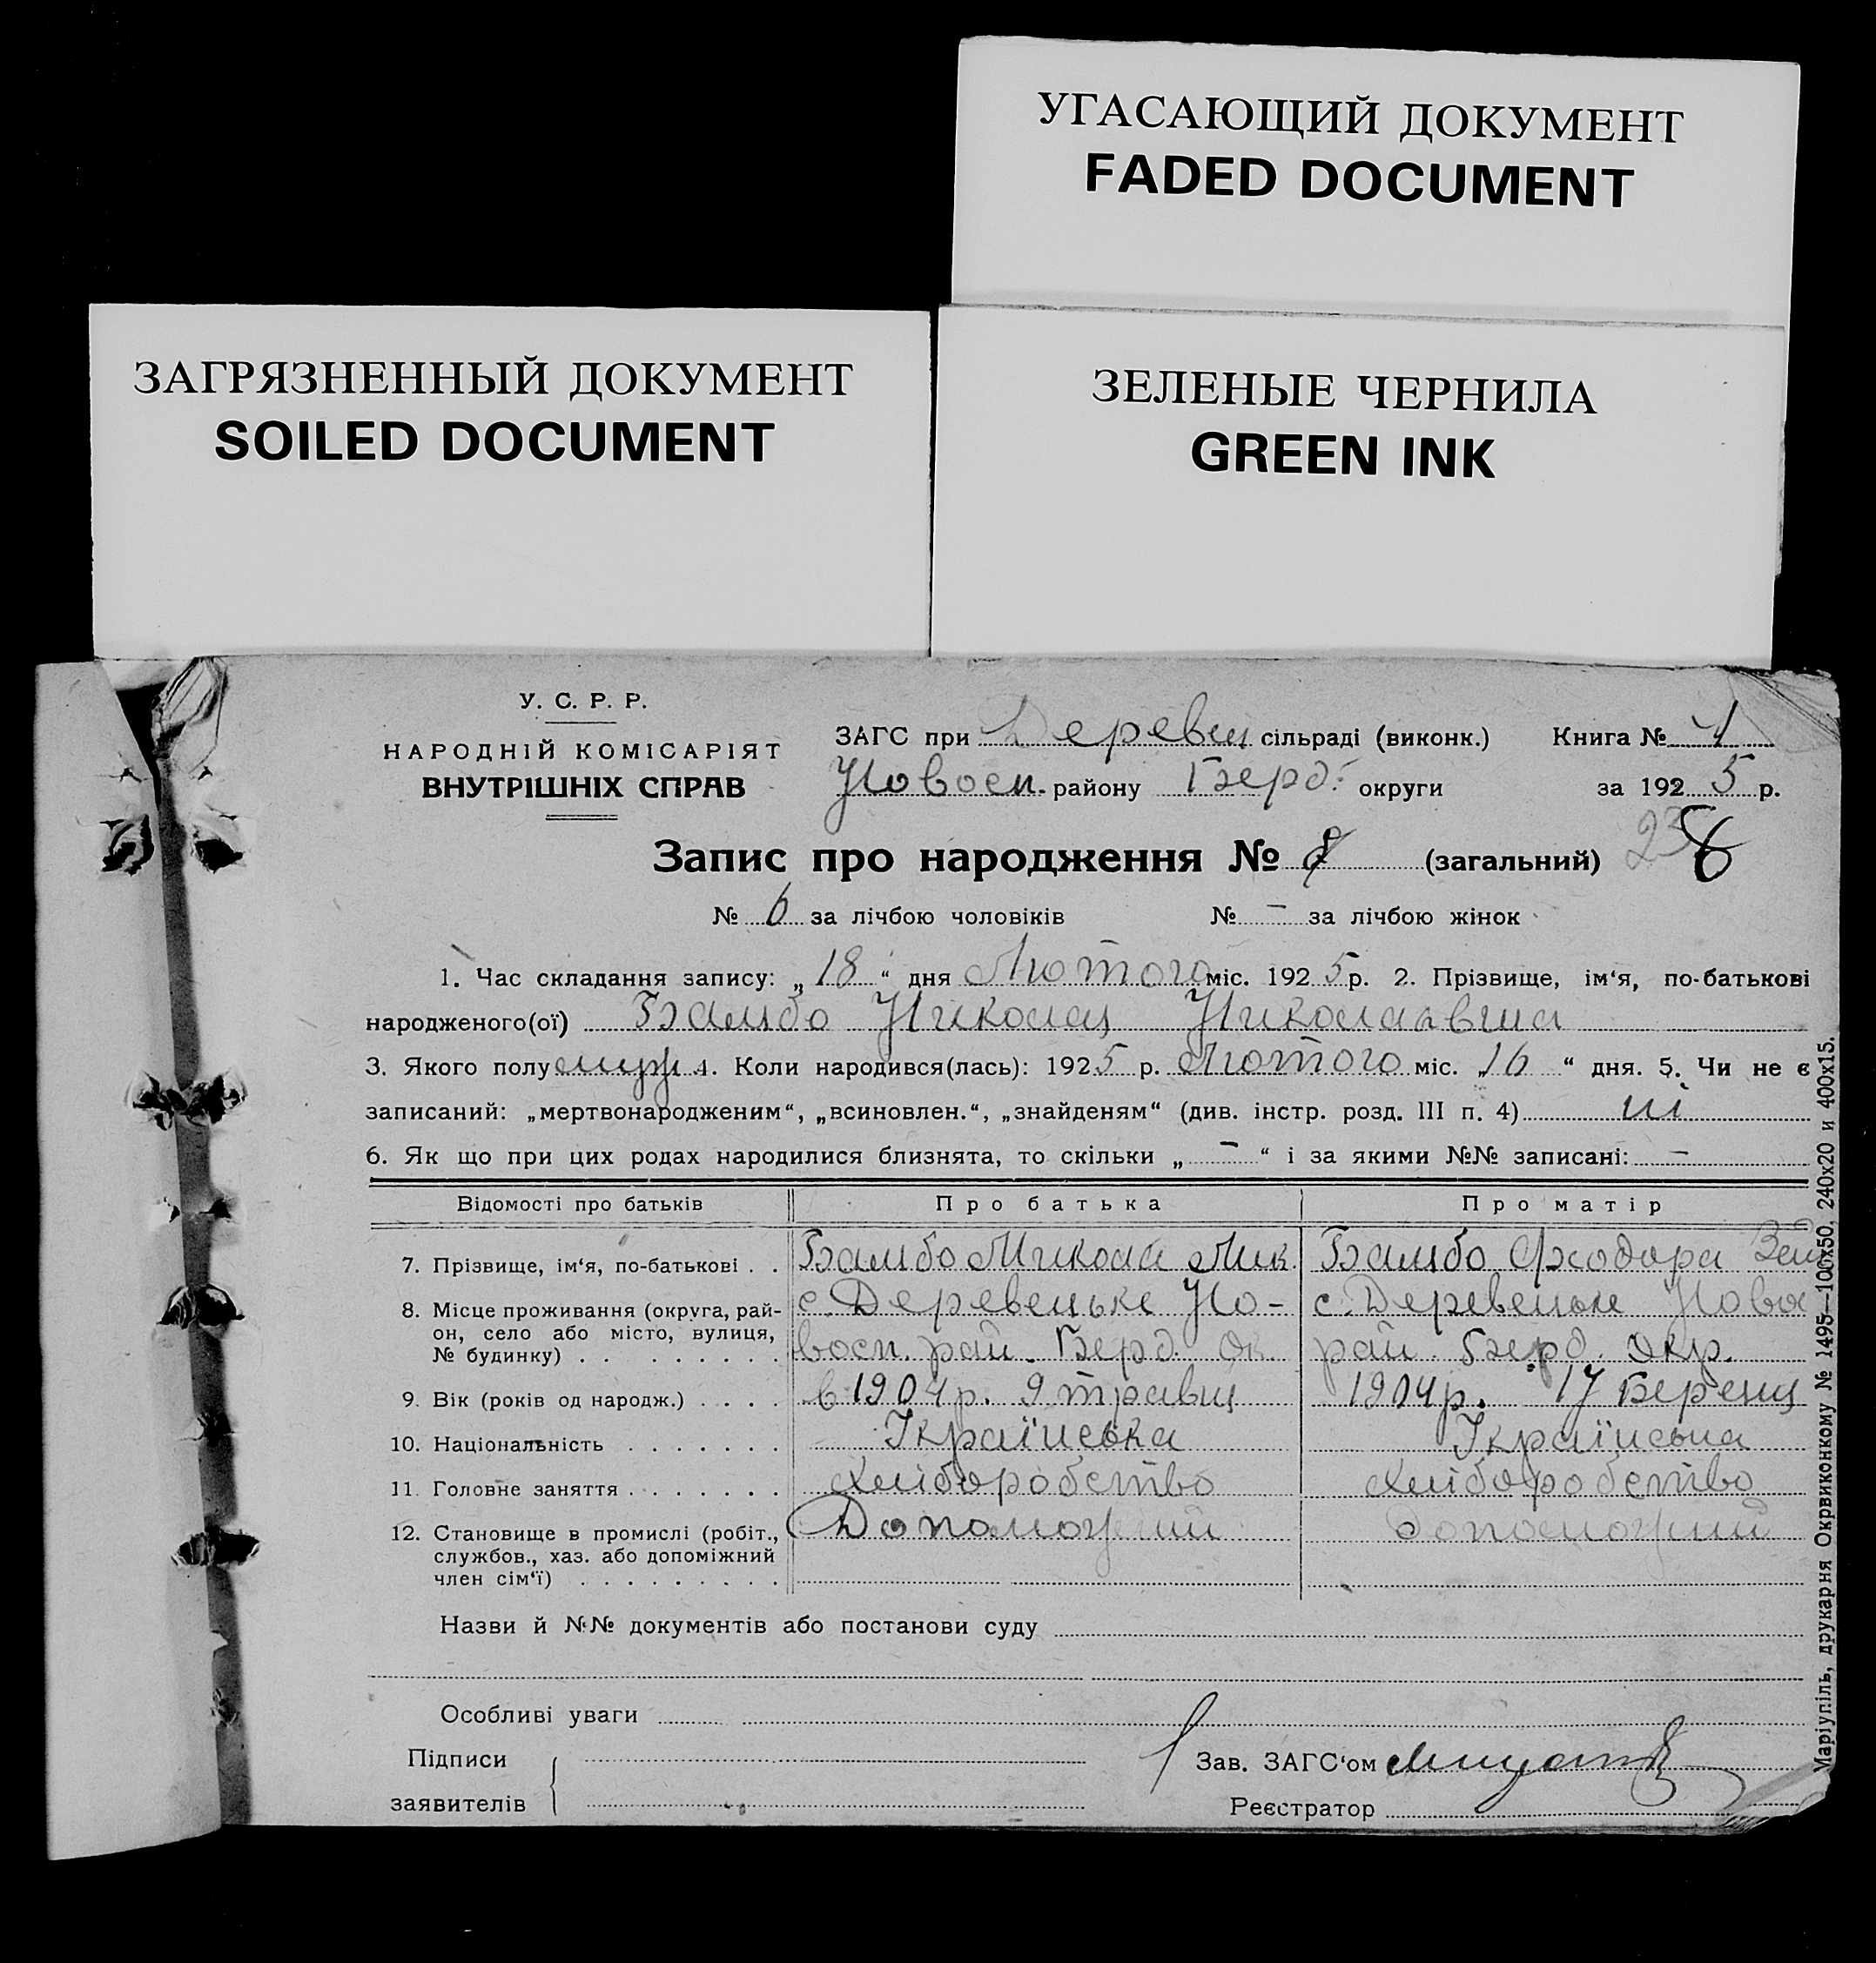 УГАСАЮЩИЙ ДОКУМЕНТ
FADED DOCUMENT
ЗАГРЯЗНЕННЫЙ ДОКУМЕНТ
SOILED DOCUMENT
ЗЕЛЕНЫЕ ЧЕРНИЛА
GREEN INK
У. С. Р. Р.
НАРОДНІЙ КОМІСАРІЯТ
ВНУТРІШНІХ СПРАВ
ЗАГС при Деревен сільраді (виконк.) Книга № 1
Новосп. району Берд. округи за 1925 р.
Запис про народження № (загальний) 8
№ 6 за лічбою чоловіків № – за лічбою жінок
1. Час складання запису: „18“ дня Лютого міс. 1925 р. 2. Прізвище, ім‘я, по-батькові
народженого(ої) Бамбо Николай
3. Якого полу муж 4. Коли народився(лась): 1925 р. Лютого міс. „16“ дня. 5. Чи не є
записаний: „мертвонародженим“, „всиновлен.“, „знайденям“ (див. інстр. розд. III п. 4) ні
6. Як що при цих родах народилися близнята, то скільки „–“ і за якими №№ записані: –
Відомості про батьків Про батька Про матір
7. Прізвище, ім‘я, по-батькові . . Бамбо Микола Мик. Бамбо
8. Місце проживання (округа, рай-
он, село або місто, вулиця,
№ будинку) . . . . . . .
с. Деревецьке Но-
восп. рай. Берд. Ок.
с. ДеревецькеНово
рай. Берд. Окр.
9. Вік (років од народж.) . . . . в 1904 р. 9 травн 1904 р. 17 Березн
10. Національність . . . . . . . Українська Українська
11. Головне заняття . . . . . . . Хліборобство Хліборобство
12. Становище в промислі (робіт.,
службов., хаз. або допоміжний
член сім‘ї) . . . . . . . . .
Назви й №№ документів або постанови суду
Особливі уваги
Підписи
заявителів
Зав. ЗАГС‘ом
Реєстратор
Маріупіль, друкарня Окрвиконкому № 1495—100х50, 240х20 и 400х15.